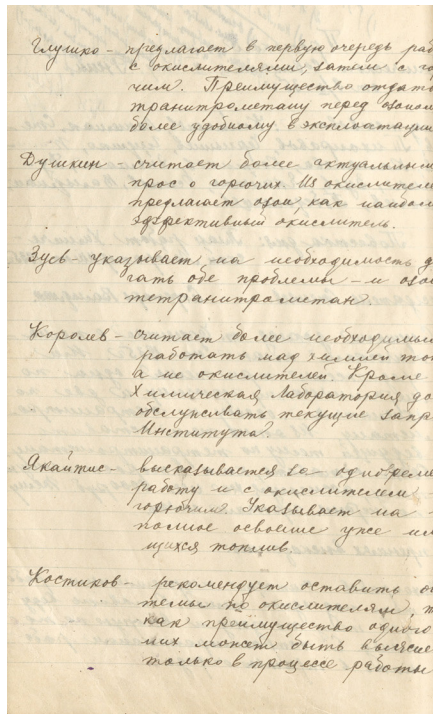 Глушко - предлагает в первую очередь раб
с окислителями, затем с го
чим. Преимущество отдать
транитрометану перед озоном
более удобному в эксплоатации
Душкин - считает более актуальным
прос о горючих. Из окислител
предлагает озон, как наибол
эффективный окислитель.
Зуев - указывает на необходимость д
гать обе проблемы - и озон
тетранитрометан.
Королев - считает более необходимым
работать над химией топ
а не окислителей. Кроме
Химическая Лаборатория до
обслуживать текущие запр
Института.
Якайтис - высказывается за одновреме
работу и с окислителем
горючим. Указывает на
полное освоение уже им
щихся топлив.
Костиков - рекомендует оставить об
темы по окислителям, т
как преимущество одного
них может быть выяснe
только в процессе работы